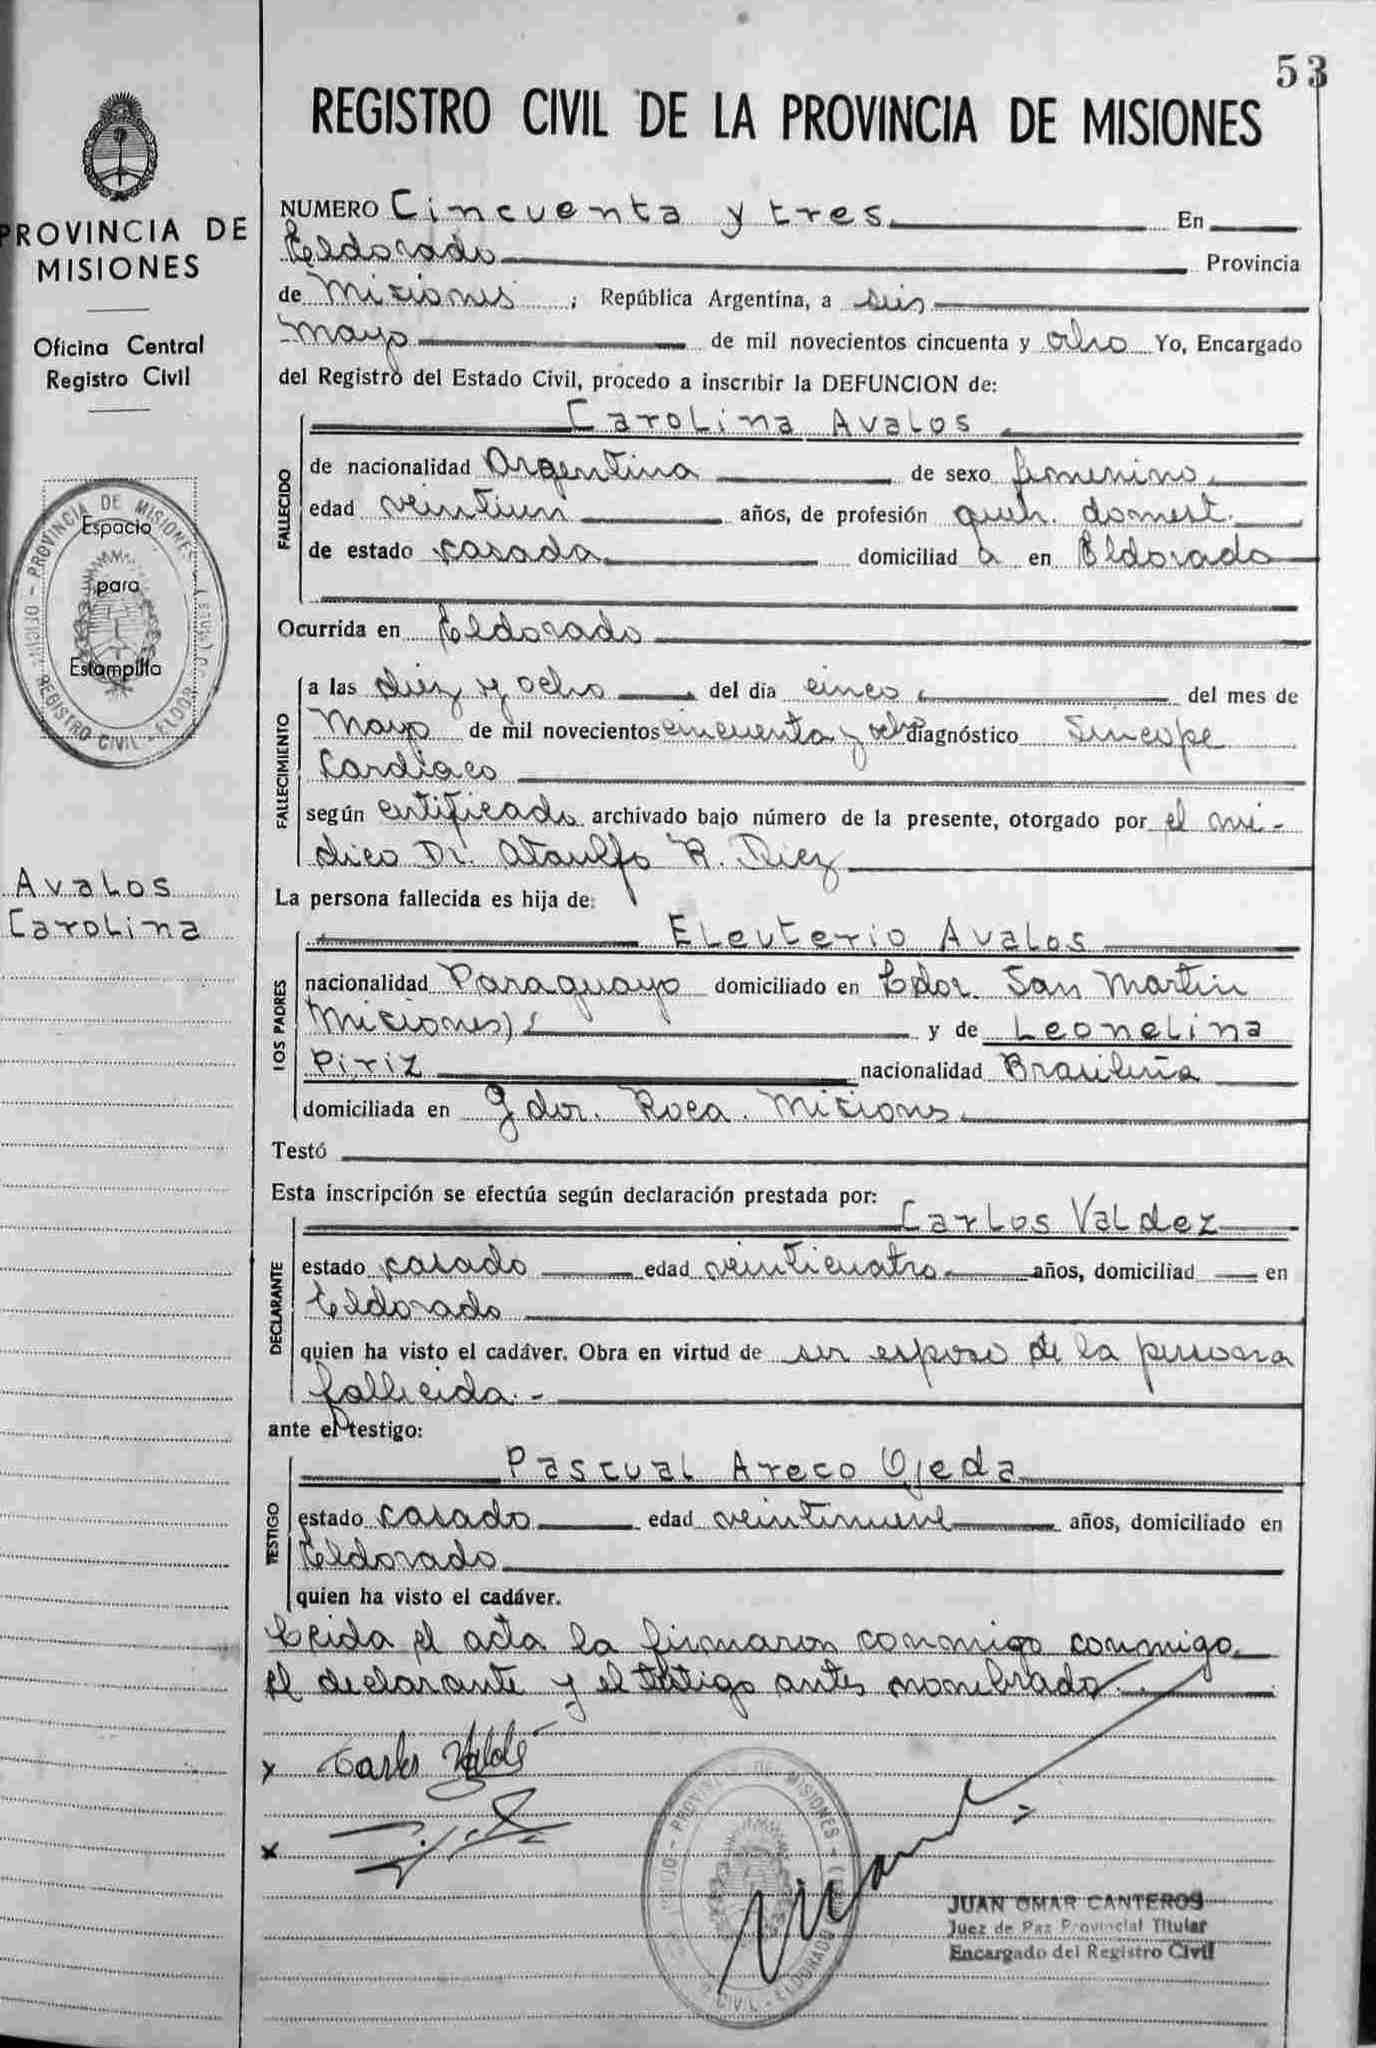 53
REGISTRO CIVIL DE LA PROVINCIA DE MISIONES
PROVINCIA DE
MISIONES
Oficina Central
Registro Civil
Espacio
para
Estampilla
Avalos
Carolina
NUMERO Cincuenta y tres En
Eldorado Provincia
de Misiones ; República Argentina, a seis
Mayo de mil novecientos cincuenta y ocho Yo, Encargado
del Registro del Estado Civil, procedo a inscribir la DEFUNCION de:
Carolina Avalos
FALLECIDO
de nacionalidad Argentina de sexo femenino
edad veintiun años, de profesión queh. domest.
de estado casada domiciliad a en Eldorado
Ocurrida en Eldorado
FALLECIMIENTO
a las diez y ocho del día cinco del mes de
Mayo de mil novecientos cincuenta y ocho diagnóstico Sincope
Cardiaco
según certificado archivado bajo número de la presente, otorgado por el mé-
dico Dr. Ataulfo R. Diez
La persona fallecida es hija de:
Eleuterio Avalos
LOS PADRES
nacionalidad Paraguayo domiciliado en Ldor. San Martin
Misiones) y de Leonelina
Piriz nacionalidad Brasileña
domiciliada en Gdor. Roca. Misiones.
Testó
Esta inscripción se efectúa según declaración prestada por:
Carlos Valdez
DECLARANTE
estado casado edad veinticuatro años, domiciliad en
Eldorado
quien ha visto el cadáver. Obra en virtud de ser esposo de la persona
fallecida.-
ante el testigo:
Pascual Areco Ojeda
TESTIGO
estado casado edad veintinueve años, domiciliado en
Eldorado
quien ha visto el cadáver.
Leida el acta la firmaron conmigo conmigo
el declarante y el testigo antes nombrado.
x Carlos Valdé
x
JUAN OMAR CANTEROS
Juez de Paz Provincial Titular
Encargado del Registro Civil